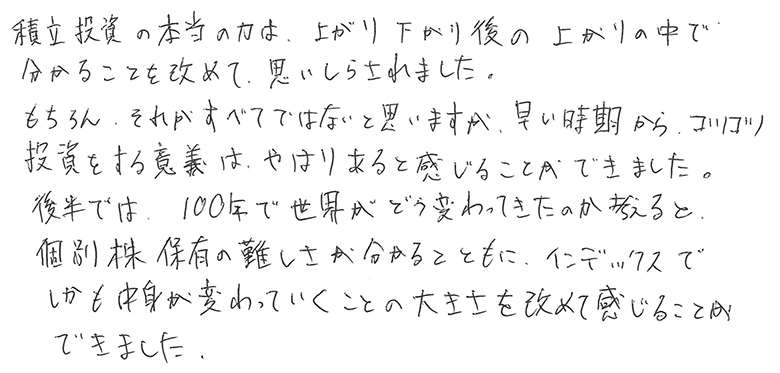 積立投資の本当の力は、上がり下がり後の上がりの中で
分かることを改めて、思いしらされました。
もちろん、それがすべてではないと思いますが、早い時期から、コツコツ
投資をする意義は、やはりあると感じることができました。
後半では、100年で世界がどう変わってきたのか考えると、
個別株保有の難しさが分かるとともに、インデックスで
しかも中身が変わっていくことの大きさを改めて感じることが
できました。